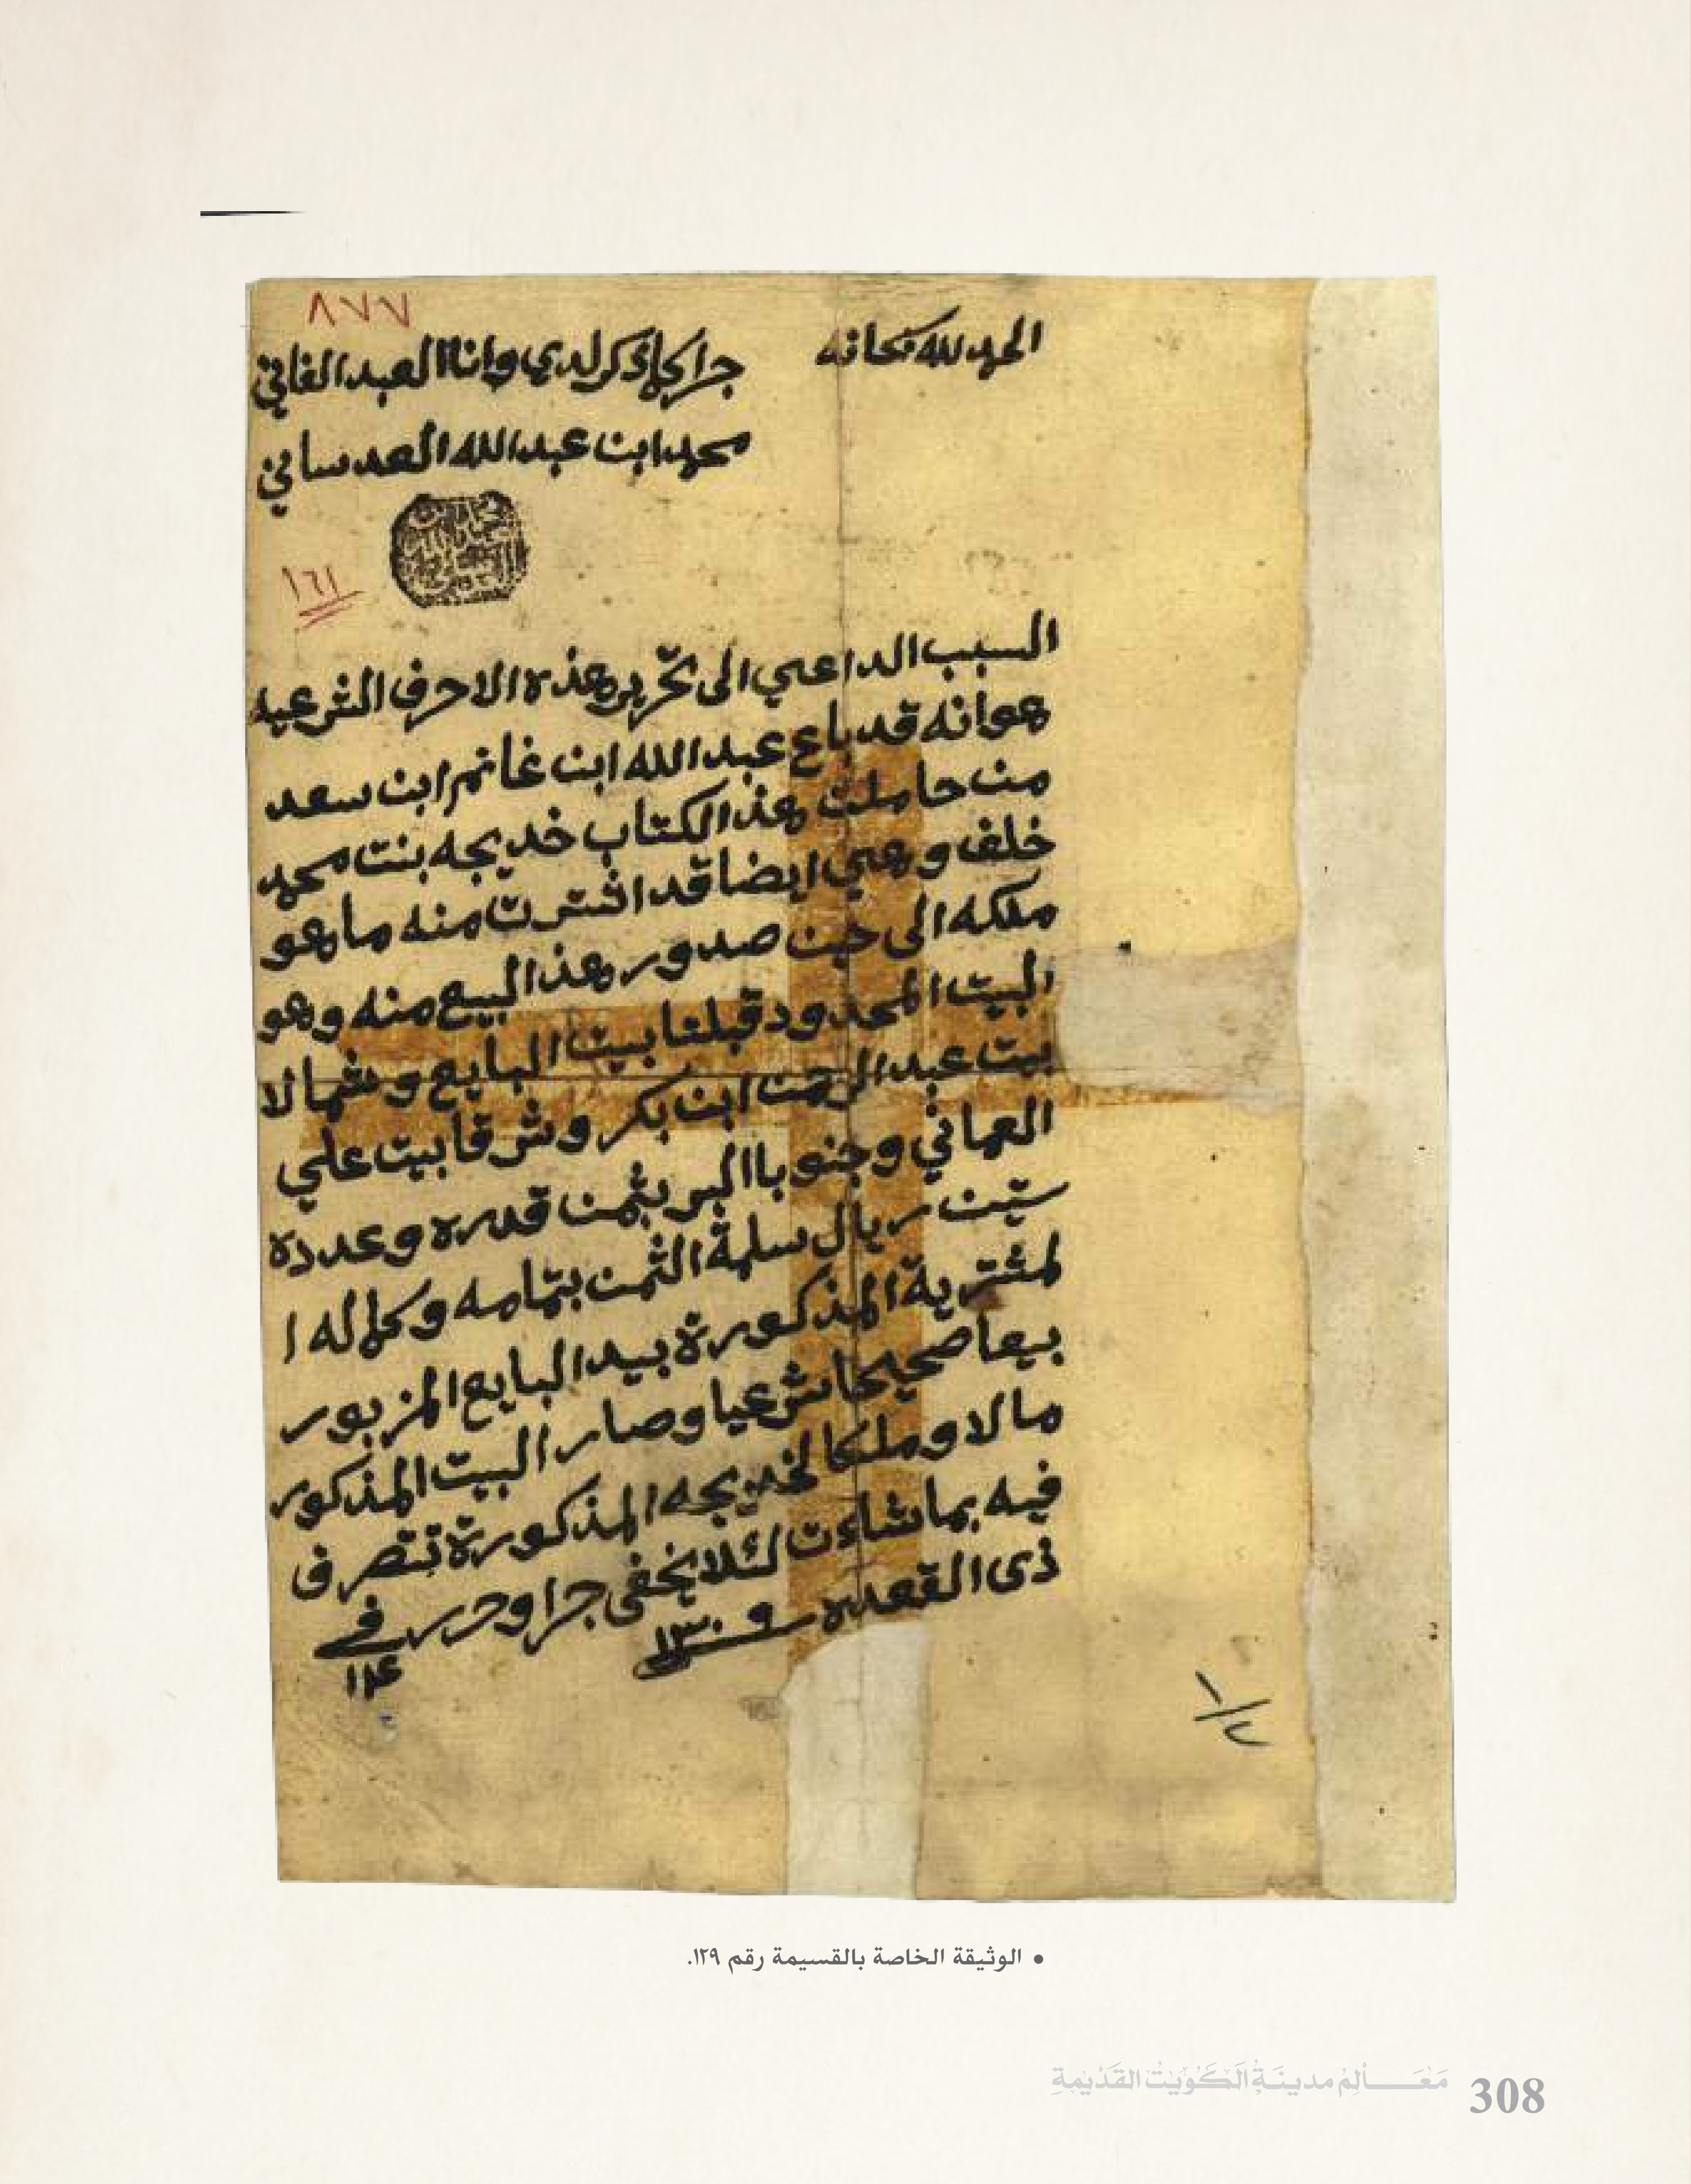 ٨٧٧
الحمد لله سبحانه
جرا كما ذكر لدي وانا العبد الفاني
محمد ابن عبدالله العدساني
١٦١
السبب الداعي الى تحرير هذه الاحرف الشرعيه
هو انه قد باع عبدالله ابن غانم ابن سعد
من حاملت هذا الكتاب خديجه بنت محمد
خلف وهي ايضا قد اشترت منه ما هو
ملكه الى حين صدور هذا البيع منه وهو
البيت المحدود قبلتا بيت البايع وشمالا
بيت عبد الرحمن ابن بكر وشرقا بيت علي
العماني وجنوبا البر بثمن قدره وعدده
ستين ريال سلمة الثمن بتمامه وكماله ا
لمشترية المذكورة بيد البايع المزبور
بيعا صحيحا شرعيا وصار البيت المذكور
مالا وملكا لخديجه المذكورة تتصرف
فيه بما شاءت لئلا يخفى جرا وحرر في
١٤
ذى القعده
١/٧
• الوثيقة الخاصة بالقسيمة رقم ١٢٩.
مَعَالِمُ مدينَةِ الكُوَيْتِ القَدِيمَةِ 308